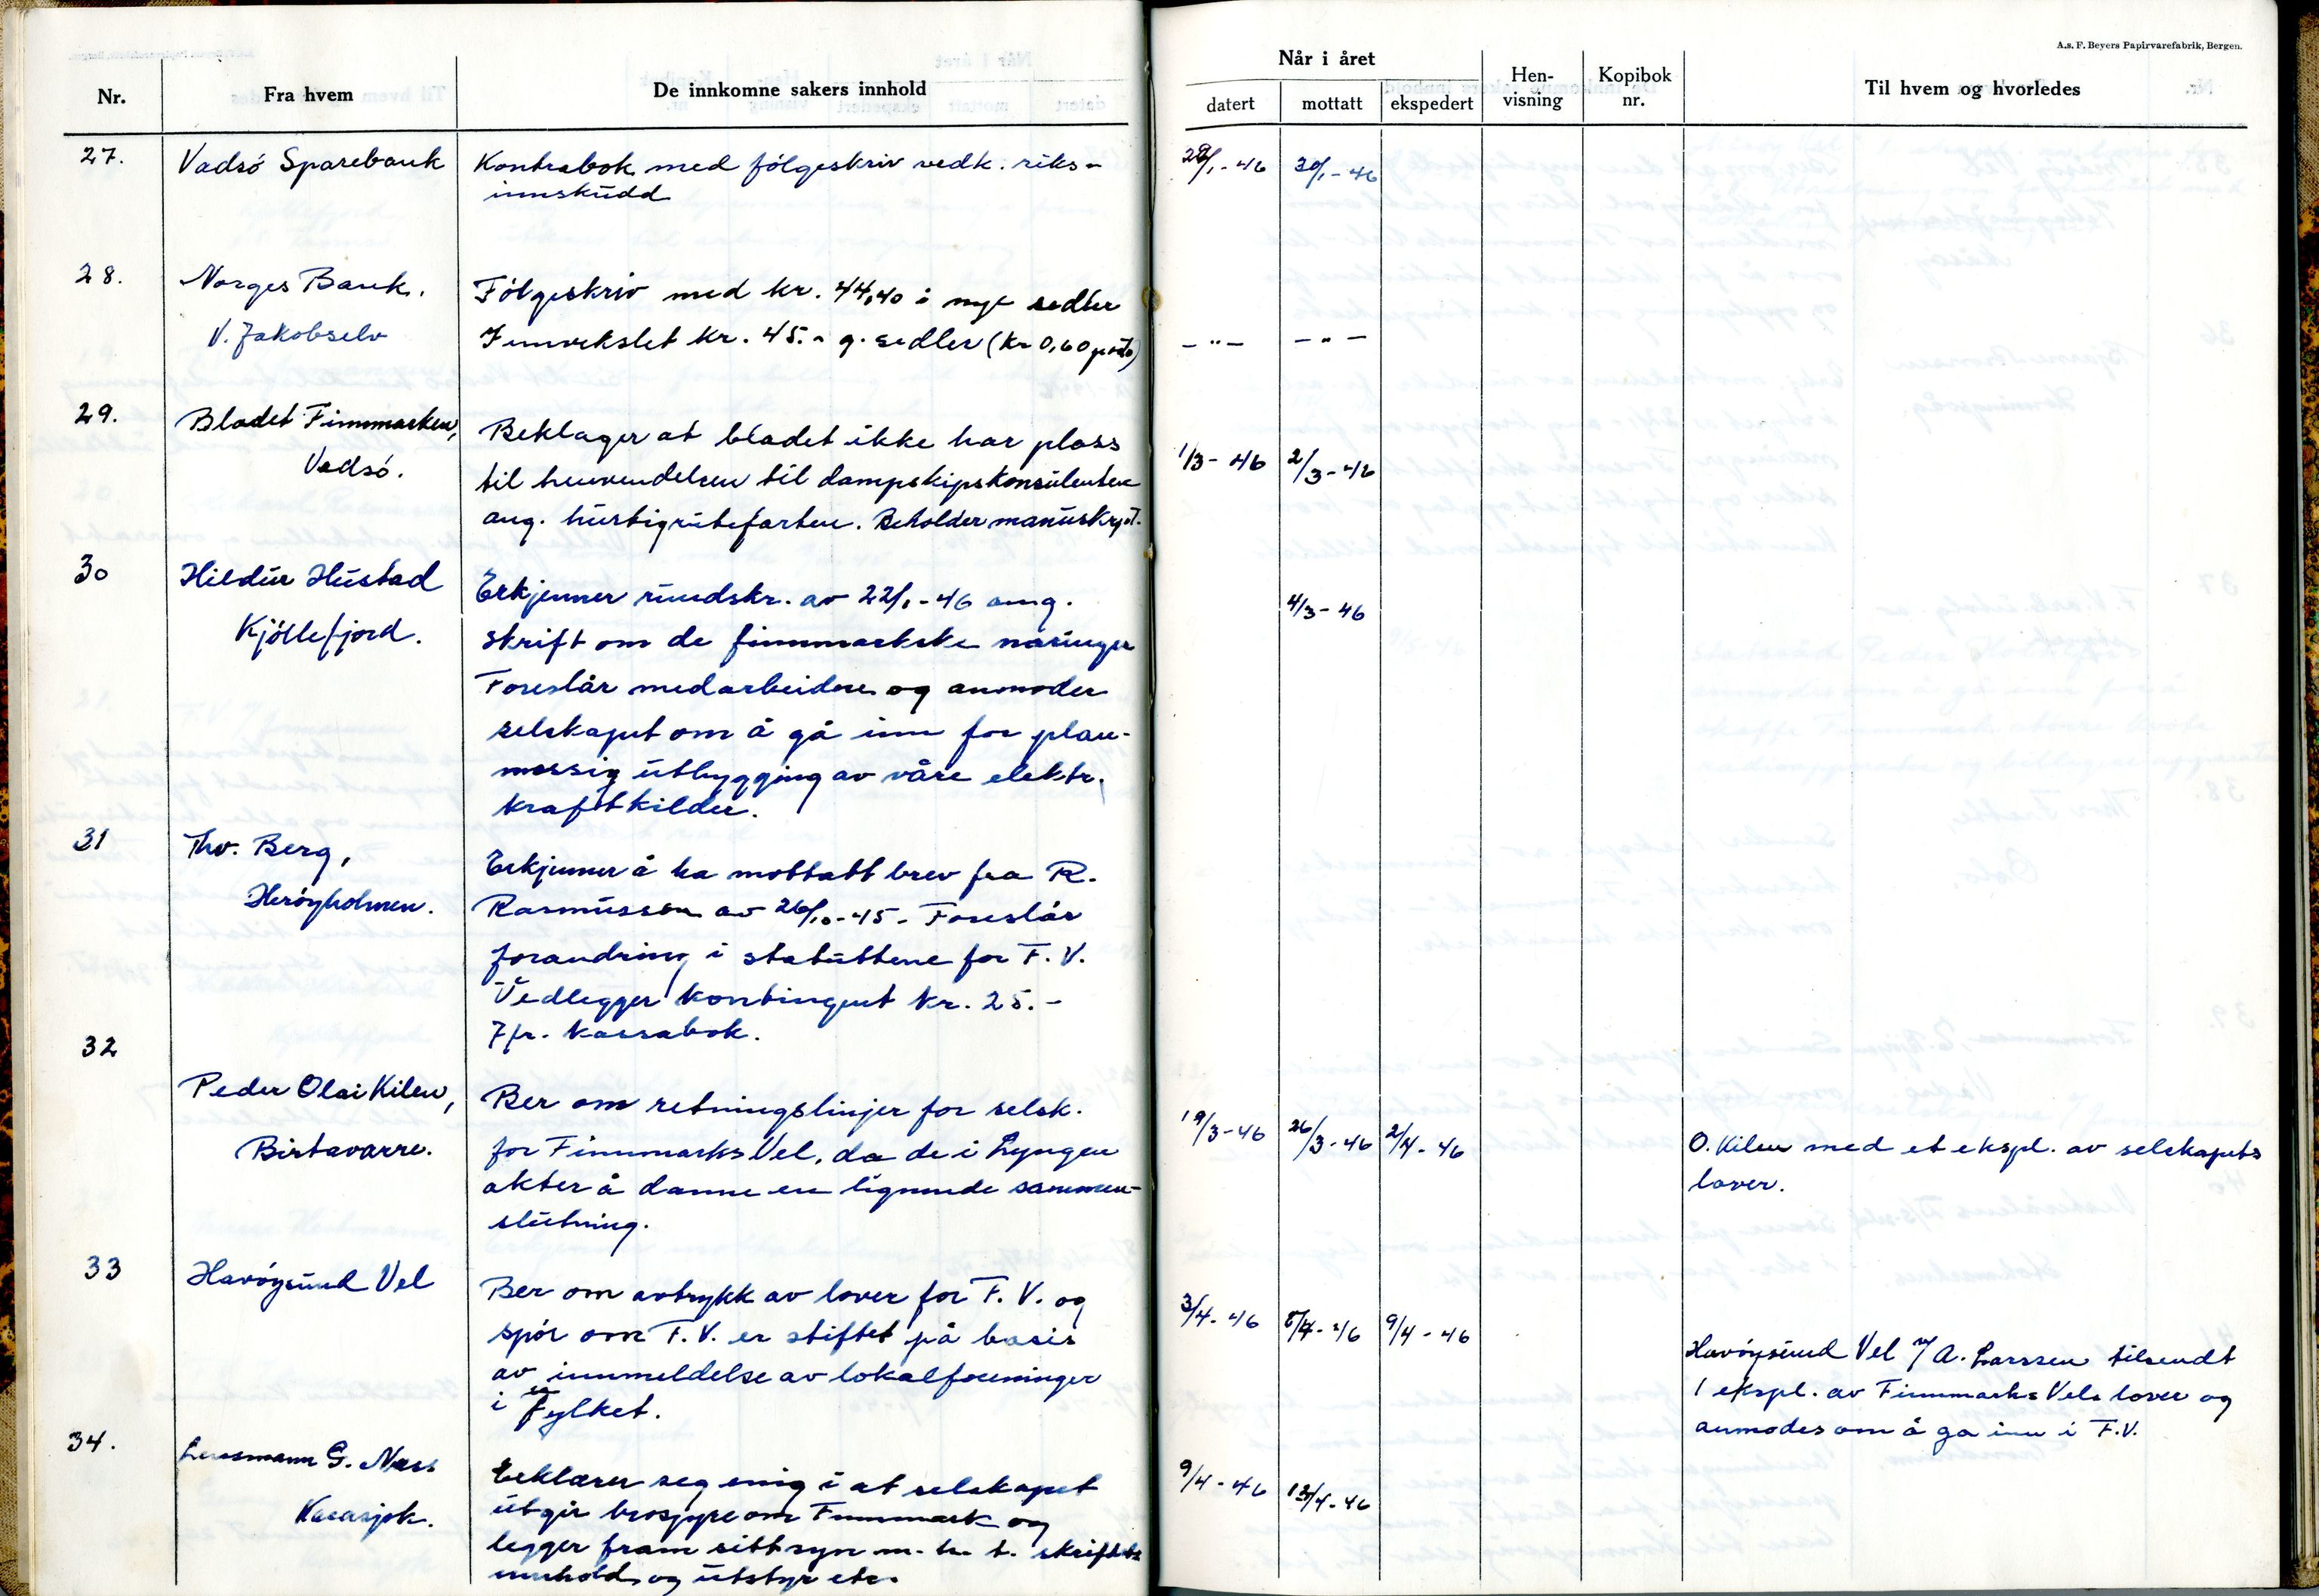 A.s. F. Beyers Papirvarefabrik, Bergen.
Nr.
Fra hvem
De innkomne sakers innhold
Når i året
datert
mottatt
ekspedert
Hen-
visning
Kopibok
nr.
Til hvem og hvorledes
27.
Vadsö Sparebank
Kontrabok med fölgeskriv vedk. riks-
innskudd
29/1-46
30/1-46
28.
Norges Bank.
V. Jakobselv
Fölgeskriv med kr. 44,40 i nye sedler
Innvekslet kr. 45.- g. sedler (Kr 0,60 porto)
- " -
- " -
29.
Bladet Finnmarken,
Vadsö.
Beklager at bladet ikke har plass
til henvendelsen til dampskipskonsulenten
ang. hurtigrutefarten. Beholder manuskript.
1/3-46
2/3-46
30
Hildur Hustad
Kjöllefjord.
Erkjenner rundskr. av 22/1-46 ang.
skrift om de finnmarkske næringer
Foreslår medarbeidere og anmoder
selskapet om å gå inn for plan-
messig utbygging av våre elektr.
kraftkilder.
4/3-46
31
Thv. Berg,
Heröyholmen.
Erkjenner å ha mottatt brev fra R.
Rasmussen av 26/10-45. Foreslår
forandring i statuttene for F. V.
Vedlegger kontingent kr. 25.-
Jfr. kassabok.
32
Peder Olai Kilen,
Birtavarre.
Ber om retningslinjer for selsk.
for Finnmarks Vel, da de i Lyngen
akter å danne en lignende sammen-
slutning.
19/3-46
26/3-46
2/4-46
O. Kilen med et ekspl. av selskapets
lover.
33
Havöysund Vel
Ber om avtrykk av lover for F. V. og
spör om F. V. er stiftet på basis
av innmeldelse av lokalforeninger
i fylket.
3/4-46
8/4-46
9/4-46
Havöysund Vel v/ A. Larssen tilsendt
1 ekspl. av Finnmarks Vels lover og
anmodes om å gå inn i F.V.
34.
Lensmann G. Næss
Karasjok.
Erklærer seg enig i at selskapet
utgir brosjyre om Finnmark og
legger fram sitt syn m. h. t. skriftets
innhold og utstyr etc.
9/4-46
13/4-46